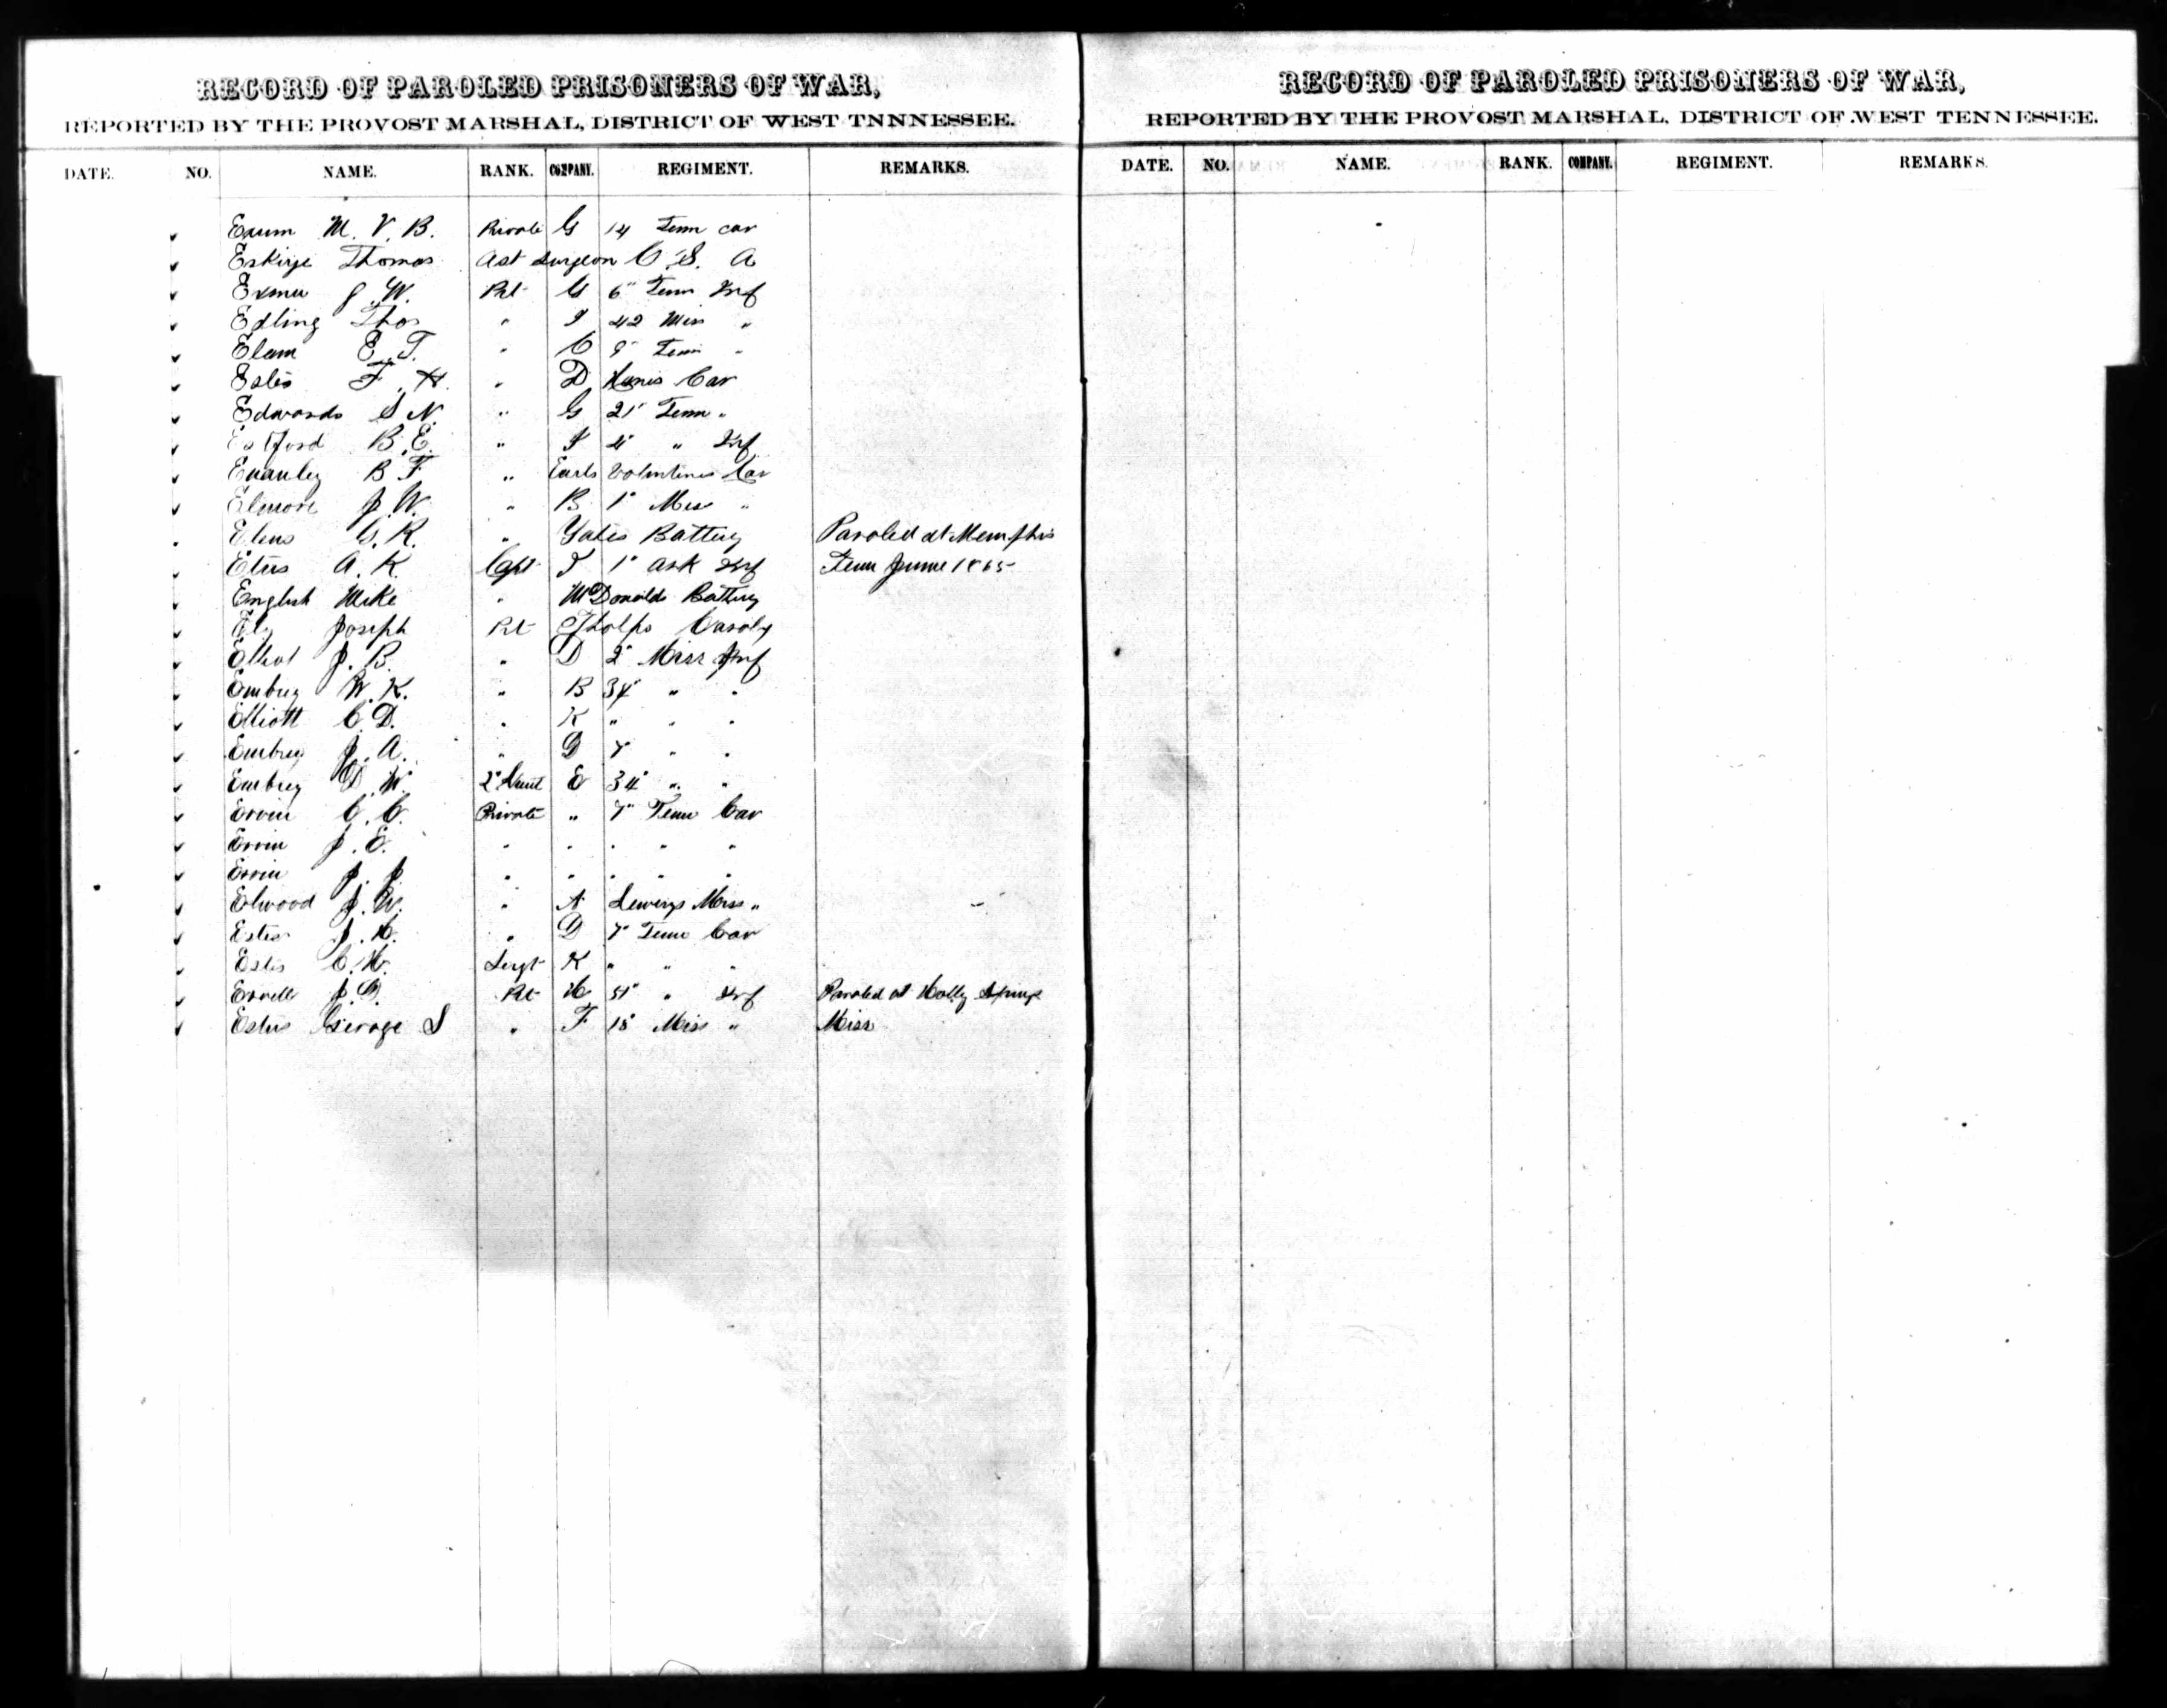 RECORD OF PAROLED PRISONERS OF WAR,
REPORTED BY THE PROVOST MARSHAL, DISTRICT OF WEST TNNNESSEE.
DATE. NO. NAME. RANK. COMPANY. REGIMENT. REMARKS.
Exum M. V. B. Private G 14 Tenn cav
Eskirge Thomas Ast Surgeon C. S. A
J. W. Pvt G 6" Tenn Inf
Edling Thos " I 42 Miss "
Elam E. T. " C 9" Tenn "
Estes F. H. " D Cav
Edwards S N. " G 21" Tenn "
B. E. " I 4" " Inf
B F " Earls Volunteers Cav
Elmore J. W. " B 1" Miss "
G. R. " Yates Battery Paroled at Memphis
A. K. Capt I 1" Ark Inf Tenn June 1865
English Mike " McDonalds Battery
Ely Joseph Pvt
Elliot J. B. " D 2" Miss Inf
Embrey W. K. " B 34" " "
Elliott C. D. " K " " "
Embrey J. A. " D 7 " "
Embrey D. W. 2" Lieut E 34" " "
Ervin C. C. Private " 7" Tenn Cav
Ervin J. E. " " " " "
Ervin J. J. " " " " "
Elwood J. W. " A Miss "
Estes J. H. " D 7" Tenn Cav
Estes C. H. Sergt K " " "
J. D. Pvt H 51" " Inf Paroled at Holly Springs
Estus George S " F 18" Miss " Miss
RECORD OF PAROLED PRISONERS OF WAR,
REPORTED BY THE PROVOST MARSHAL, DISTRICT OF WEST TENNESSEE.
DATE. NO. NAME. RANK. COMPANY. REGIMENT. REMARKS.